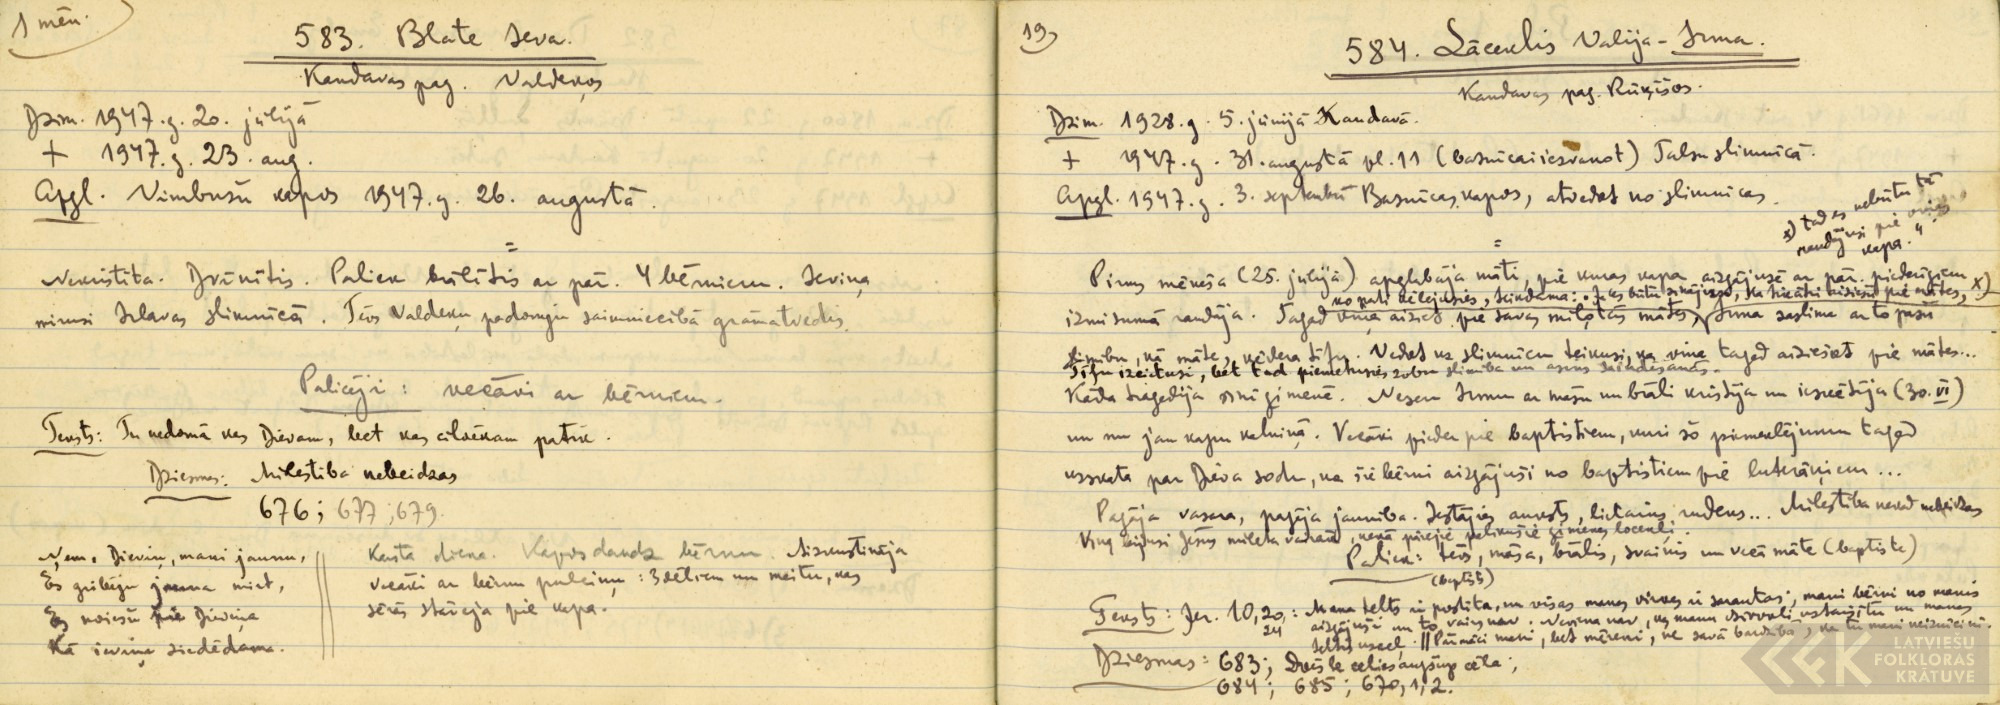 1 mēn.
583. Blate Ieva.
Kandavas pag. Valdeķos
Dzim. 1947.g. 20. jūlijā
+ 1947.g. 23. aug.
Apgl. Nimbusu kapos 1947.g. 26. augustā.
=
Nekristīta. Dvīnītis. Paliek brālītis ar pār. 4 bērniem. Ieviņa
mirusi Irlavas slimnīcā. Tēvs Valdeķu padomju saimniecībā grāmatvedis.
Palicēji: vecāvi ar bērniem.
Teksts: Tu nedomā kas Dievam, bet kas cilvēkam patīk.
Dziesmas: Mīlestība nebeidzas
676; 677; 679.
Ņem, Dieviņ, mani jaunu,
Es gribēju jauna miet,
Es noiešu pie Dieviņa
Kā ieviņa ziedēdama.
Karsta diena. Kapos daudz bērnu. Aizkustināja
vecāki ar bērnu pulciņu: 3 dēliem un meitu, kas
sērās stāvēja pie kapa.
19)
584. Lācenlis Valija-Irma.
Kandavas pag. Rūķīšos.
Dzim. 1928.g. 5. jūnijā Kandavā.
+ 1947.g. 31. augustā pl. 11 (baznīcai iezvanot) Talsu slimnīcā.
Apgl. 1947.g. 3. septembrī Baznīcas kapos, atvedot no slimnīcas.
x) tad es nebūtu tā
raudājusi pie viņas
kapa."
=
Pirms mēneša (25. jūlijā) apglabāja māti, pie kuras kapa aizgājusē ar pār. piederīgiem
ko pati vēlējusies, teikdama: "Ja es būtu zinājusi, ka tik ātri aiziešu pie mātes, x)
izmisumā raudāja. Tagad viņa aiziet pie savas mīļotās mātes, Irma saslima ar to pašu
slimību, kā māte, vēdera tīfu. Vedot uz slimnīcu teikusi, ka viņa tagad aiziešot pie mātes...
Tīfu izcietusi, bet tad piemetusies zobu slimība un asins saindēšanās.
Kāda traģēdija šinī ģimenē. Nesen Irmu ar māsu un brāli kristīja un iesvētīja (30. VI)
un nu jau kapu kalniņā. Vecāki pieder pie baptistiem, kuri šo piemeklējumu tagad
uzskata par Dieva sodu, ka šie bērni aizgājuši no baptistiem pie luterāņiem...
Pagāja vasara, pagāja jaunība. Iestājies auksts, lietains rudens... Mīlestība nekad nebeidzas
Viņu bijusi Jēzus mīlēta vairāk, nekā pārējie palikušie ģimenes locekļi.
Paliek: tēvs, māsa, brālis, svainis un vecā māte (baptiste)
(baptists)
Teksts: Jer. 10,20,: Mana telts ir postīta, un visas manas virves ir sarautas; mani bērni no manis
24
aizgājuši un to vairs nav. Neviena nav, kas manu dzīvokli uztaisītu un manas
teltis uzceļ. || Pārmāci mani, bet mēreni, ne savā bardzībā, ka tu mani neiznīcini.
Dziesmas: 683; Dvēsele celies augšup cēla;
684; 685; 670,1,2.
LATVIEŠU
FOLKLORAS
KRĀTUVE